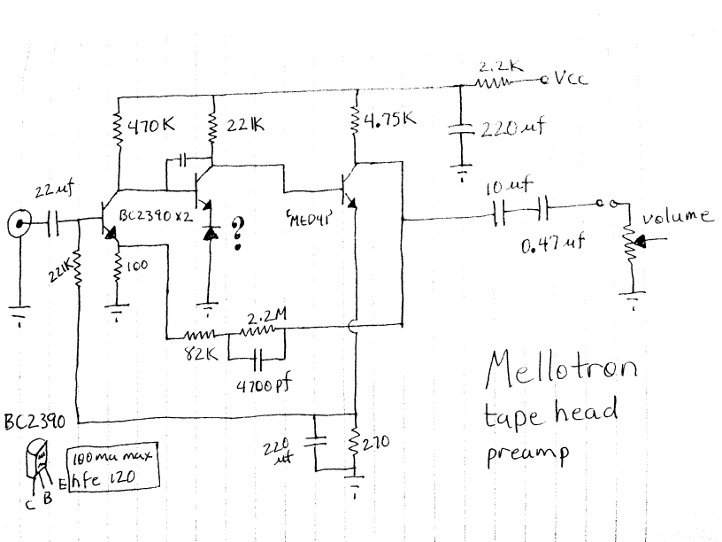 2.2K
Vcc
470K
221K
4.75K
220 uf
22uf
BC2390 x2
'MED41'
10uf
0.47 uf
volume
?
221K
100
2.2M
82K
4700pf
Mellotron
tape head
preamp
BC2390
100ma max
hfe 120
E
B
C
220
uf
270